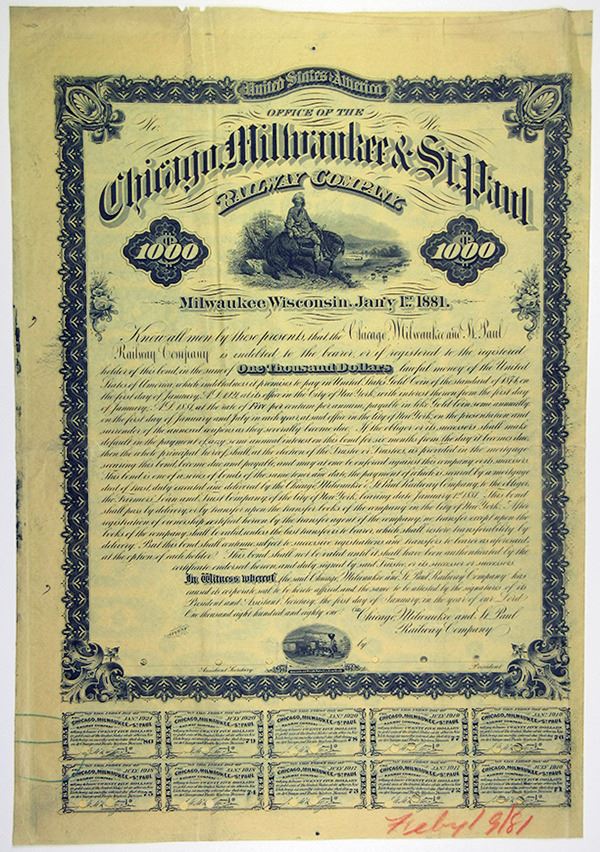 United States of America
No. OFFICE OF THE No.
Chicago, Milwaukee & St. Paul
RAILWAY COMPANY.
$1000 $1000
Milwaukee, Wisconsin. Jan'y 1st 1881.
Know all men by these presents, that the Chicago, Milwaukee and St. Paul
Railway Company is indebted to the bearer, or if registered to the registered
holder of this bond, in the sum of One Thousand Dollars lawful money of the United
States of America, which indebtedness it promises to pay in United States Gold Coin of the standard of
the first day of January, A.D. at its office in the City of New York, with interest thereon from the first day
of January, A.D. 1881, at the rate of Five per centum per annum, payable in like Gold Coin, semi-annually
on the first days of January and July in each year, at said office in the City of New York, on the presentation and
surrender of the annexed coupons as they severally become due. If the obligor or its successors shall make
default in the payment of any semi annual interest on this bond for six months from the day it becomes due,
then the whole principal hereof shall, at the election of the Trustee or Trustees, as provided in the mortgage
securing this bond, become due and payable, and may at once be enforced against this company or its successors.
This bond is one of a series of bonds of the same tenor and date, the payment of which is secured by a mortgage
deed of trust duly executed and delivered by the Chicago, Milwaukee & St. Paul Railway Company, the obligor, to
the Farmers' Loan and Trust Company of the City of New York, bearing date January 1st 1881. This bond
shall pass by delivery, or by transfer upon the transfer books of the company in the City of New York. After
registration of ownership certified hereon by the transfer agent of the company, no transfer except upon the
books of the company shall be valid, unless the last transfer is to bearer, which shall restore transferability by
delivery. But this bond shall continue subject to successive registrations and transfers to bearer as aforesaid,
at the option of each holder. This bond shall not be valid until it shall have been authenticated by the
certificate endorsed hereon, and duly signed by said Trustee, or its successor or successors.
In Witness whereof, the said Chicago, Milwaukee and St. Paul, Railway Company has
caused its corporate seal to be hereto affixed, and the same to be attested by the signatures of its
President and Assistant Secretary, the first day of January, in the year of our Lord
One thousand eight hundred and eighty one. Chicago, Milwaukee and St. Paul
Railway Company,
by
Assistant Secretary. President
JAN. 1921 JULY 1920 JAN. 1920 JULY 1919 JAN. 1919
CHICAGO, MILWAUKEE AND ST. PAUL CHICAGO, MILWAUKEE AND ST. PAUL CHICAGO, MILWAUKEE AND ST. PAUL CHICAGO, MILWAUKEE AND ST. PAUL CHICAGO, MILWAUKEE AND ST. PAUL
80 79 78 77 76
JULY 1918 JAN. 1918 JULY 1917 JAN. 1917 JULY 1916
CHICAGO, MILWAUKEE AND ST. PAUL CHICAGO, MILWAUKEE AND ST. PAUL CHICAGO, MILWAUKEE AND ST. PAUL CHICAGO, MILWAUKEE AND ST. PAUL CHICAGO, MILWAUKEE AND ST. PAUL
75 74 73 72 71
9/81